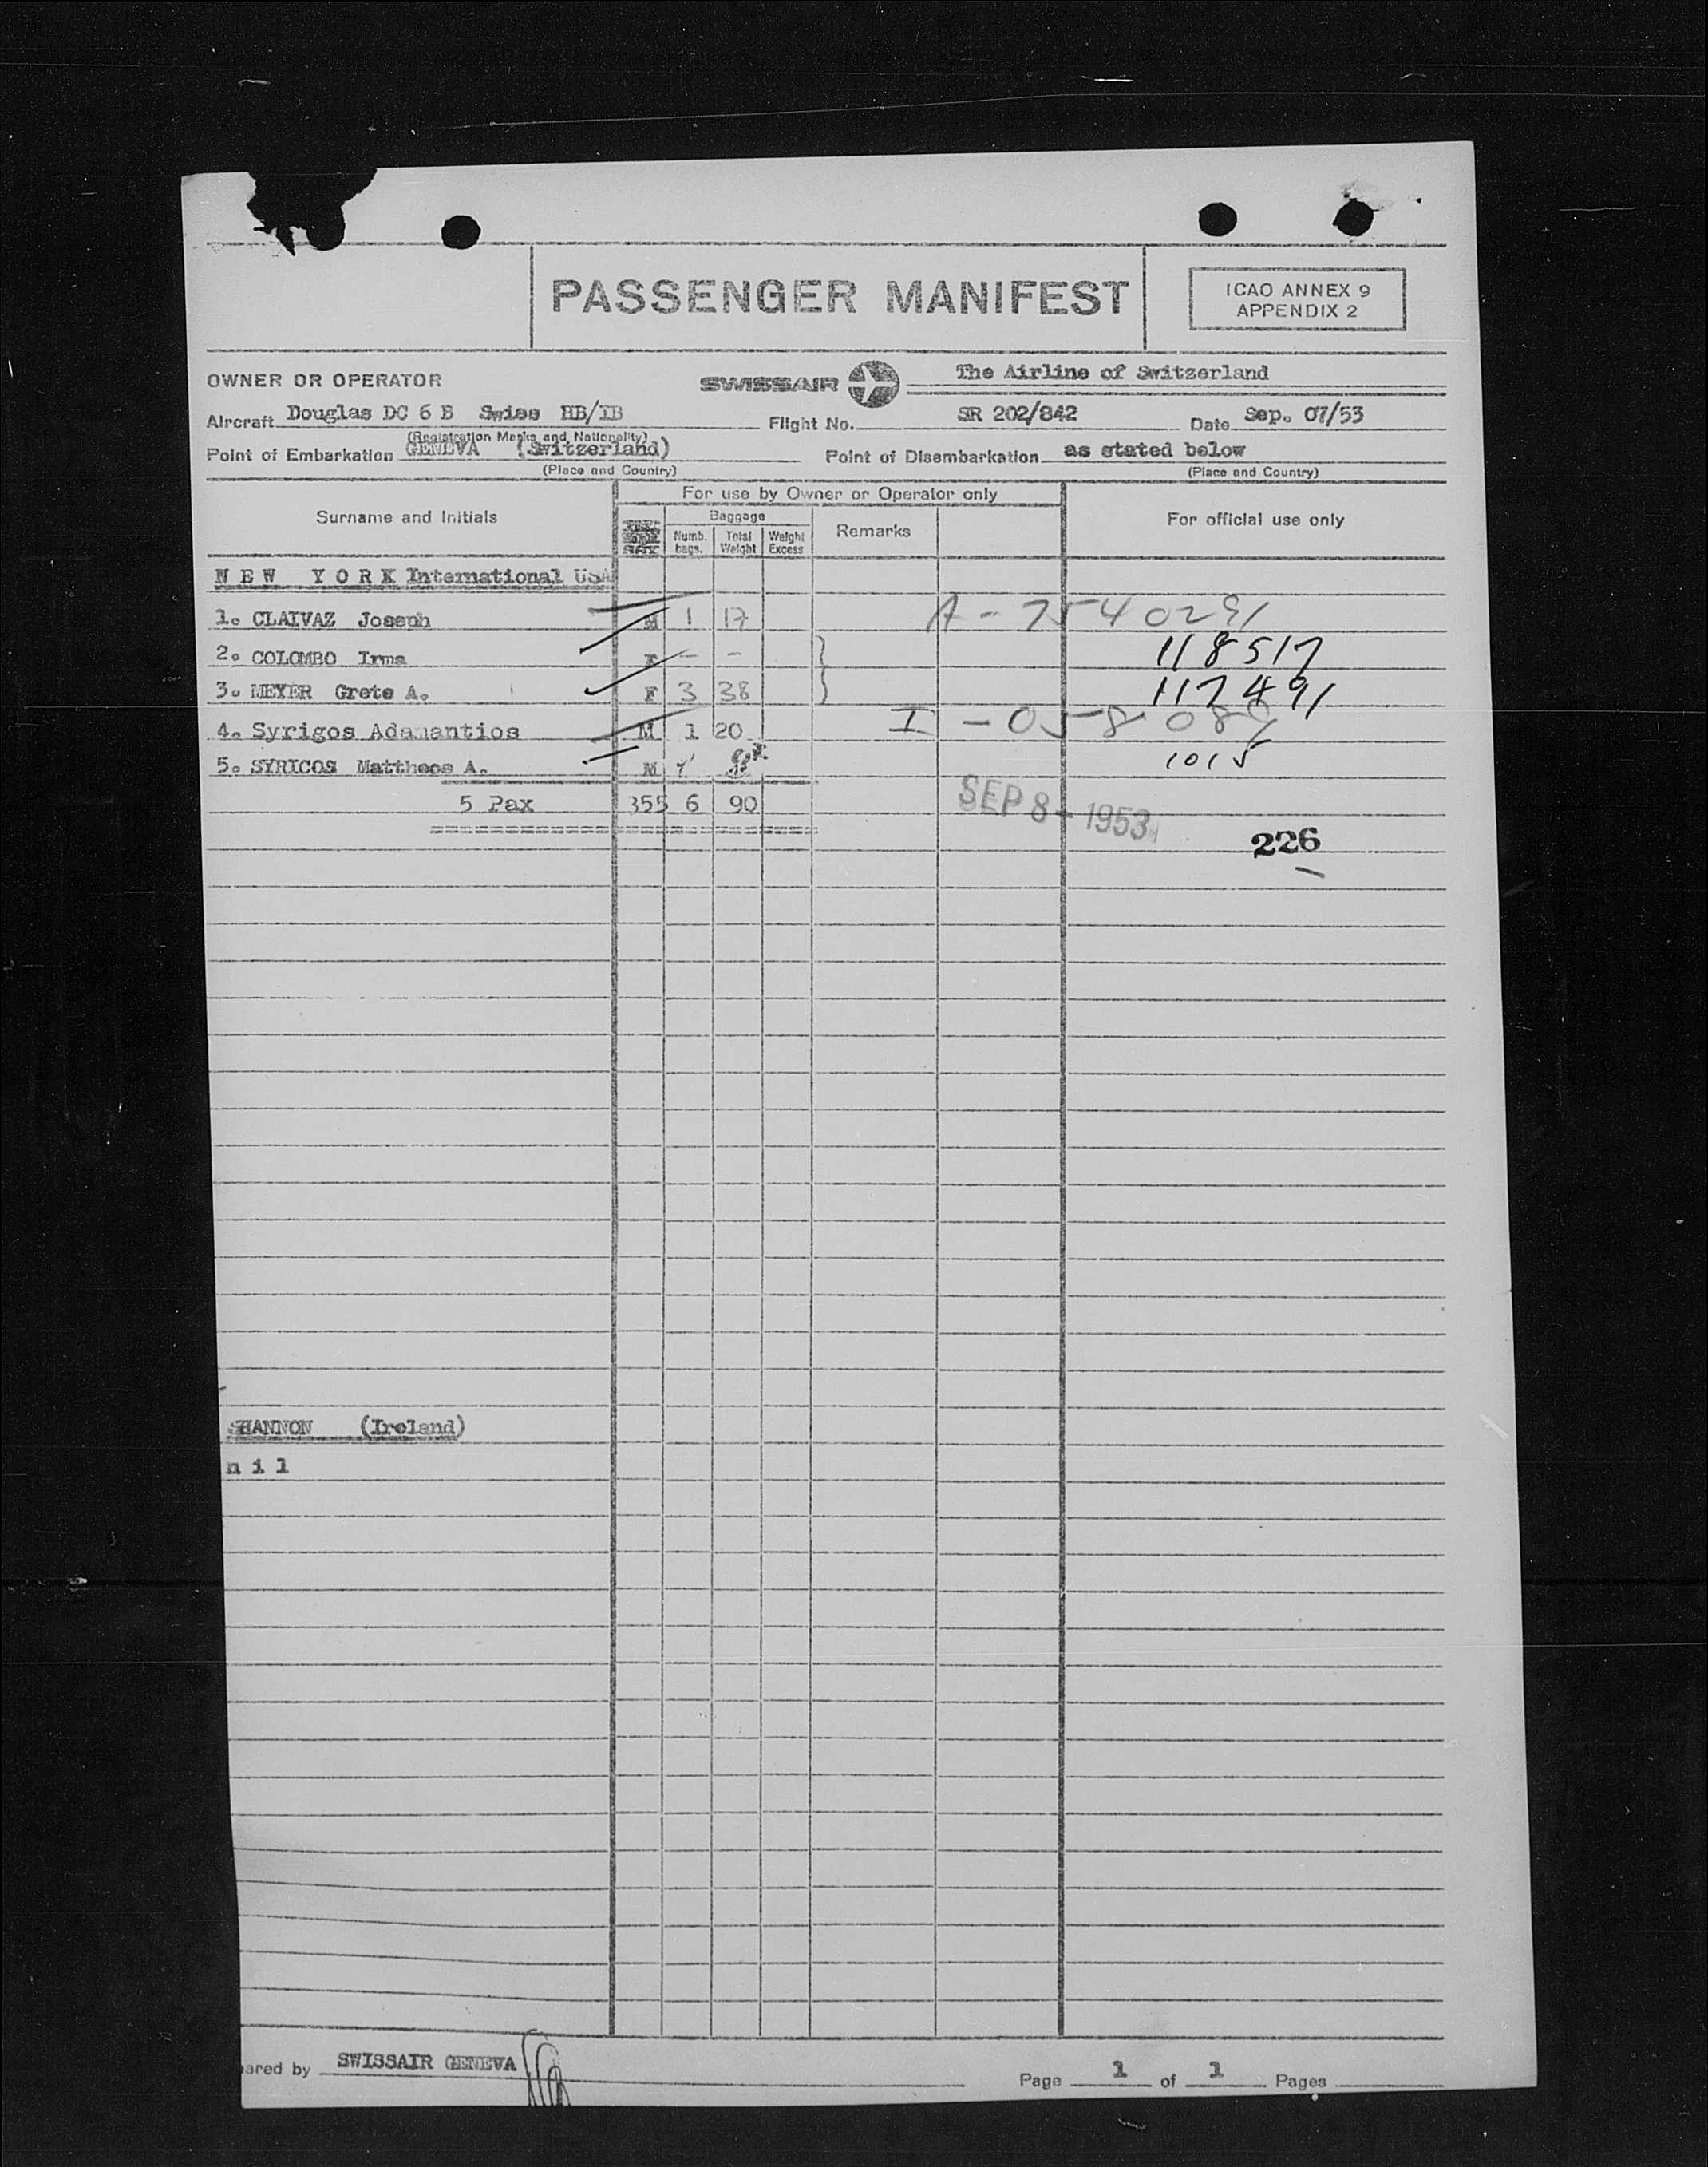 PASSENGER MANIFEST
ICAO ANNEX 9
APPENDIX 2
OWNER OR OPERATOR SWISSAIR The Airline of Switzerland
Aircraft Douglas DC 6 B Swiss HB/IB Flight No. SR 202/842 Date Sep. 07/53
(Registration Marks and Nationality)
Point of Embarkation GENEVA (Switzerland) Point of Disembarkation as stated below
(Place and Country) (Place and Country)
For use by Owner or Operator only
Surname and Initials Baggage Remarks For official use only
Numb. bags. Total Weight Weight Excess
NEW YORK International USA
1. CLAIVAZ Joseph M 1 17 A-7540291
2. COLOMBO Irma F - - 118517
3. MEYER Grete A. F 3 38 117491
4. Syrigos Adamantios M 1 20 I-058089
5. SYRICOS Mattheos A. M 1015
5 Pax 355 6 90 SEP 8 - 1953
226
SHANNON (Ireland)
nil
ared by SWISSAIR GENEVA
Page 1 of 1 Pages